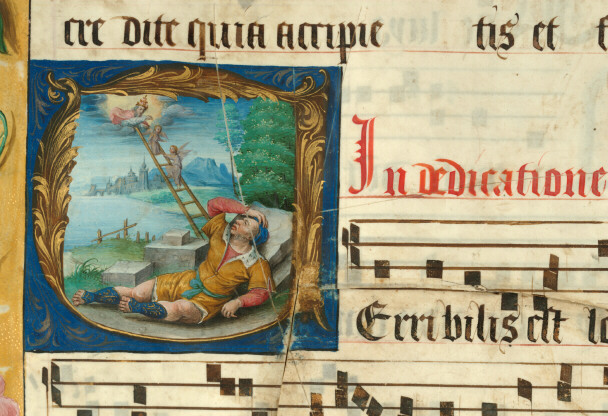 ere dite quia accipie tis et f
In dedicatione
Erribilis est lo